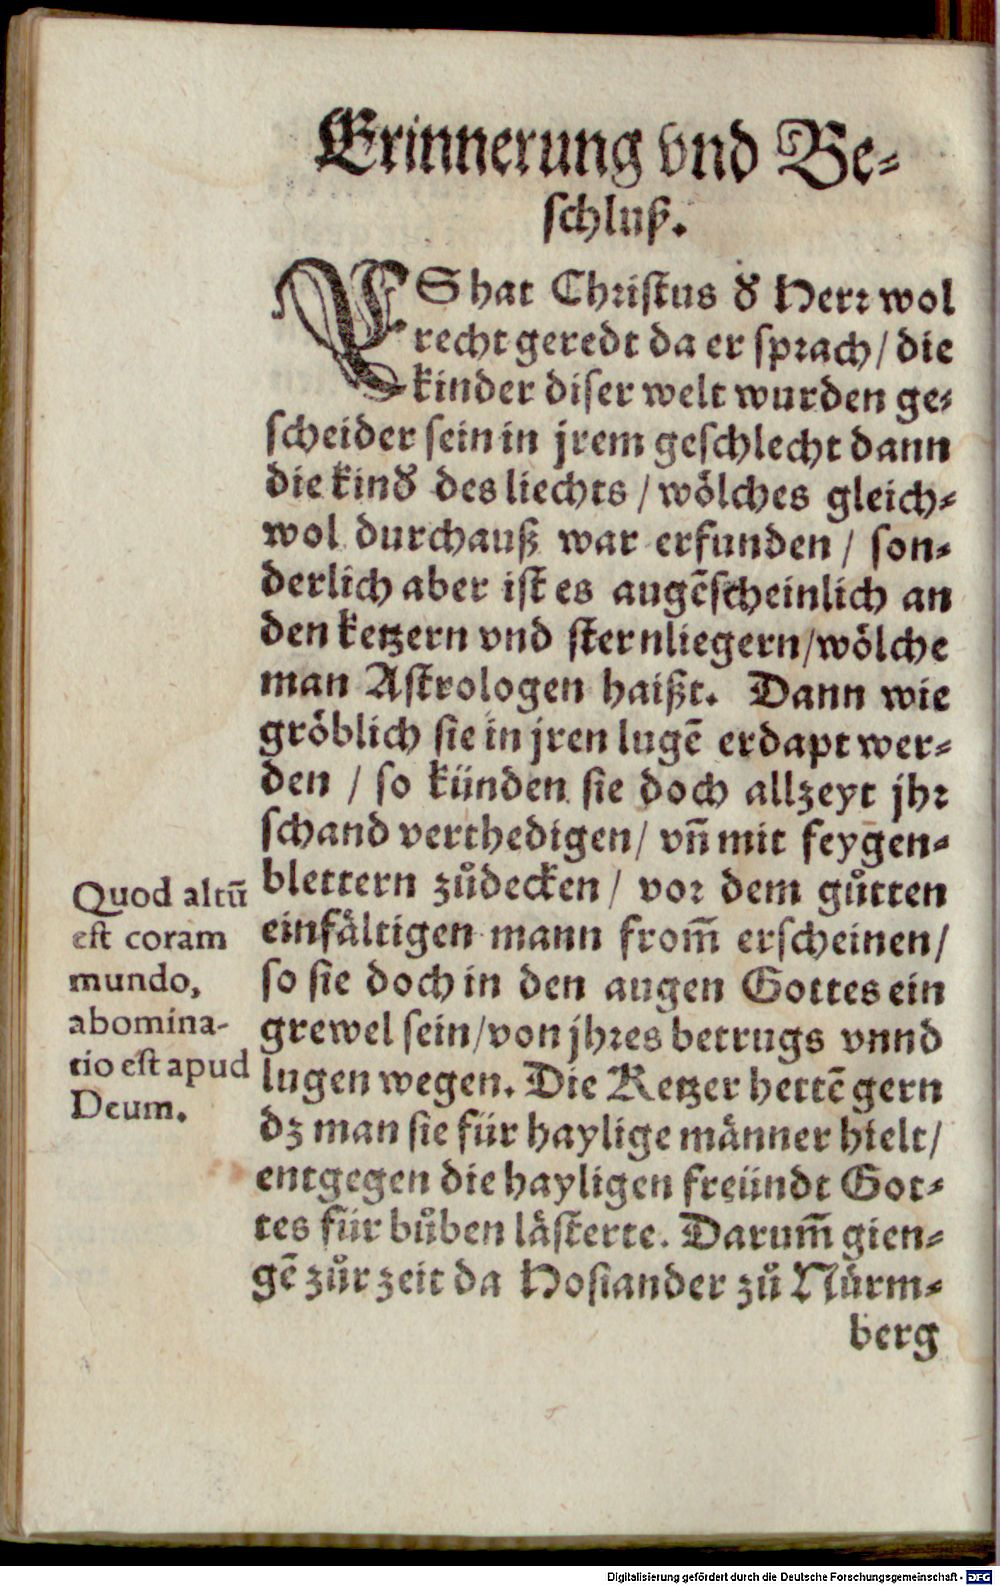 Erinnerung vnd Be-
schluß.
ES hat Christus d' Herr wol
recht geredt da er sprach / die
kinder diser welt wurden ge-
scheider sein in jrem geschlecht dann
die kind' des liechts / wölches gleich-
wol durchauß war erfunden / son-
derlich aber ist es augēscheinlich an
den ketzern vnd sternliegern / wölche
man Astrologen haißt. Dann wie
gröblich sie in jren lugē erdapt wer-
den / so künden sie doch allzeyt jhr
schand verthedigen / vn̄ mit feygen-
blettern zůdecken / vor dem gůtten
einfältigen mann from̄ erscheinen /
so sie doch in den augen Gottes ein
grewel sein / von jhres betrugs vnnd
lugen wegen. Die Ketzer hettē gern
dz man sie für haylige männer hielt /
entgegen die hayligen freündt Got-
tes für bůben lästerte. Darum̄ gien-
gē zůr zeit da Hosiander zů Nürm-
berg
Quod altū
est coram
mundo,
abomina-
tio est apud
Deum.
Digitalisierung gefördert durch die Deutsche Forschungsgemeinschaft - DFG